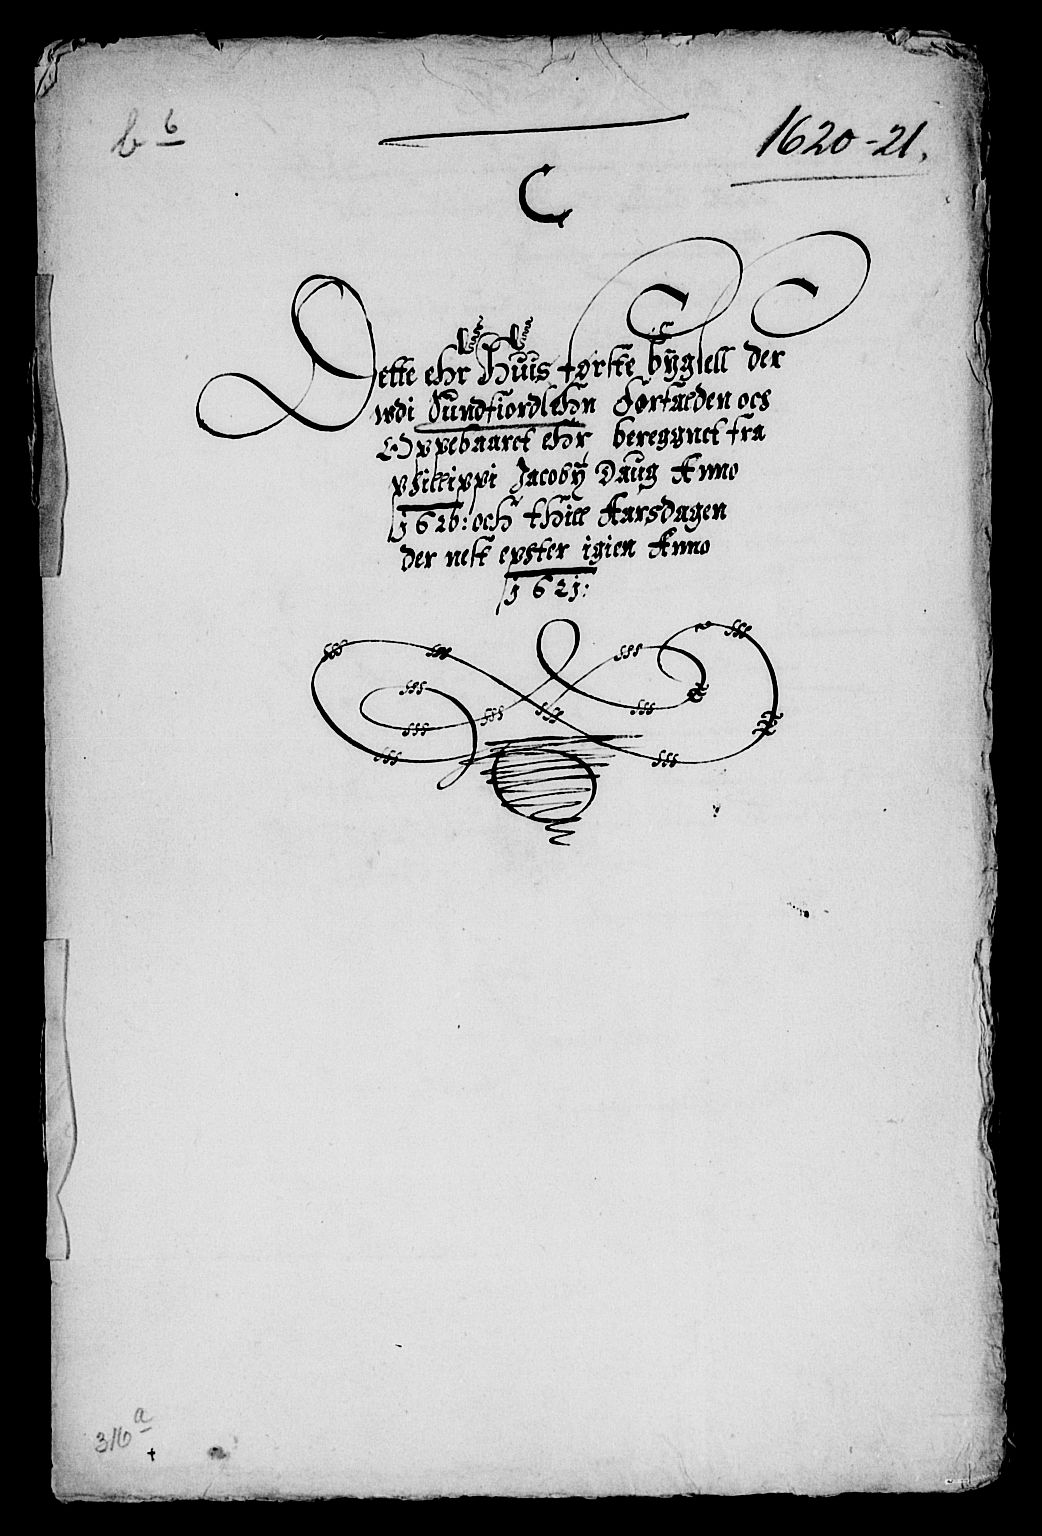 b 6
1620-21.
C
Dette ehr Huis første bÿgsell der
wdi Sundfiordlehn Forfalden och
Oppebaaret ehr bereggnet fra
philippi Jacobÿ Daug Anno
1620: och thill Aarsdagen
der nest epther igien Anno
1621:
316 a